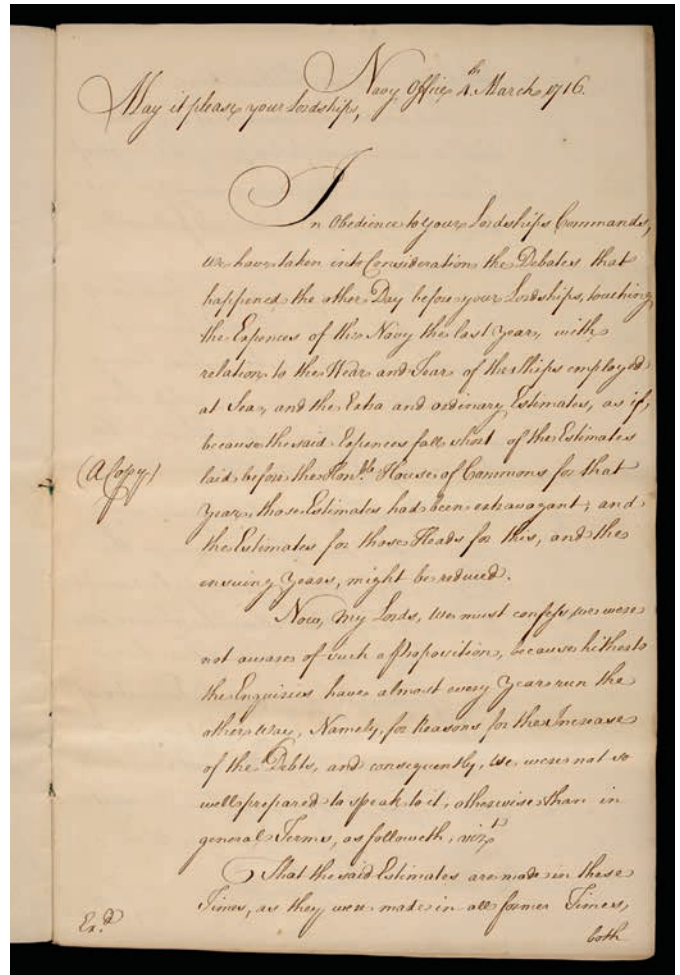 Navy Office 4th March 1716.
May it please your Lordships,
In Obedience to your Lordships Commands,
we have taken into Consideration the Debates that
happened the other Day before your Lordships, touching
the Expences of the Navy the last Year, with
relation to the Wear and Tear of the Ships employ'd
at Sea, and the Extra and ordinary Estimates, as if,
because the said Expences fall short of the Estimates
(A Copy)
laid before the Honble. House of Commons for that
Year, those Estimates had been extravagant; and
the Estimates for those Heads for this, and the
ensuing Years, might be reduced.
Now, my Lords, we must confess, we were
not aware of such a Proposition, because hitherto
the Enquiries have almost every Year run the
other Way, Namely, for Reasons for the Increase
of the Debts, and consequently, we were not so
well prepared to speak to it, otherwise than in
general Terms, as followeth, vizt.
That the said Estimates are made in these
Times, as they were made in all former Times,
Ex.d
both